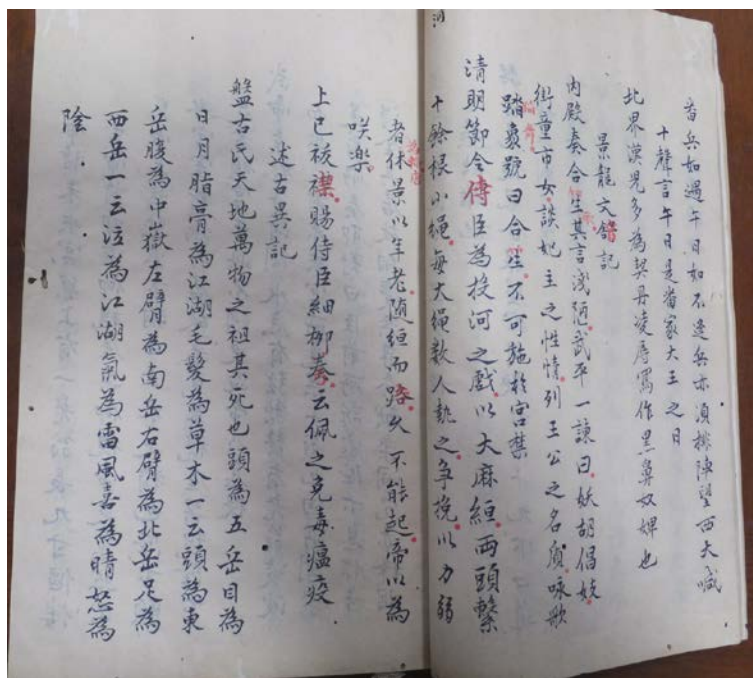 番兵如過午日如不逢兵亦須排陣望西大喊
十聲言午日是番家大王之日
北界漢兒多為契丹凌辱罵作黑鼻奴婢也
景龍文館記
內殿奏合生其言淺陋武平一諫曰妖胡倡妓
街童市女談妃主之性情列王公之名質咏歌
踏號曰合生不可施於宮禁
清明節令侍臣為投河之戲以大麻絙兩頭繫
十餘根小繩每大繩數人執之爭挽以力弱
者休景以年老隨絙而踣久不能起帝以為
咲樂
上巳祓禊賜侍臣細柳奏云佩之免毒瘟疫
述古異記
盤古氏天地萬物之祖其死也頭為五岳目為
日月脂膏為江湖毛髮為草木一云頭為東
岳腹為中嶽左臂為南岳右臂為北岳足為
西岳一云泣為江湖氣為雷風喜為晴怒為
陰